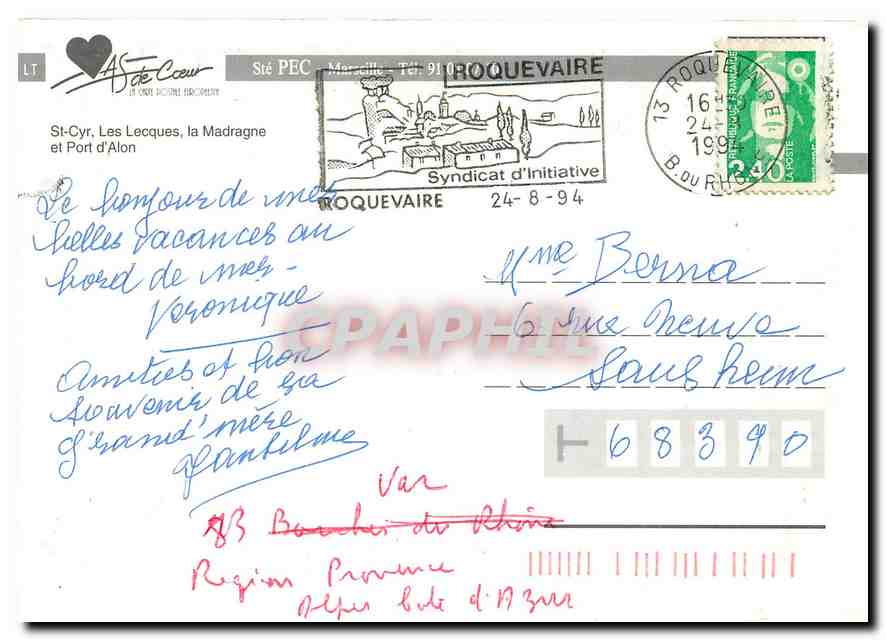 LT
AS de Cœur
LA CARTE POSTALE EUROPEENNE
Sté PEC - Marseille - Tél. 91.0
St-Cyr, Les Lecques, la Madragne
et Port d'Alon
ROQUEVAIRE
Syndicat d'Initiative
ROQUEVAIRE 24-8-94
13 ROQUEVAIRE
16H
24-
199
B. DU RH
REPUBLIQUE FRANÇAISE
2,40
LA POSTE
Le bonjour de mes
belles vacances au
bord de mer -
Veronique
Amitiés et bon
souvenir de sa
Grand'mère
Mme Berna
6 rue Neuve
Sausheim
68390
CPAPHIL
Var
83 Bouches du Rhône
Region Provence
Alpes Cote d'Azur